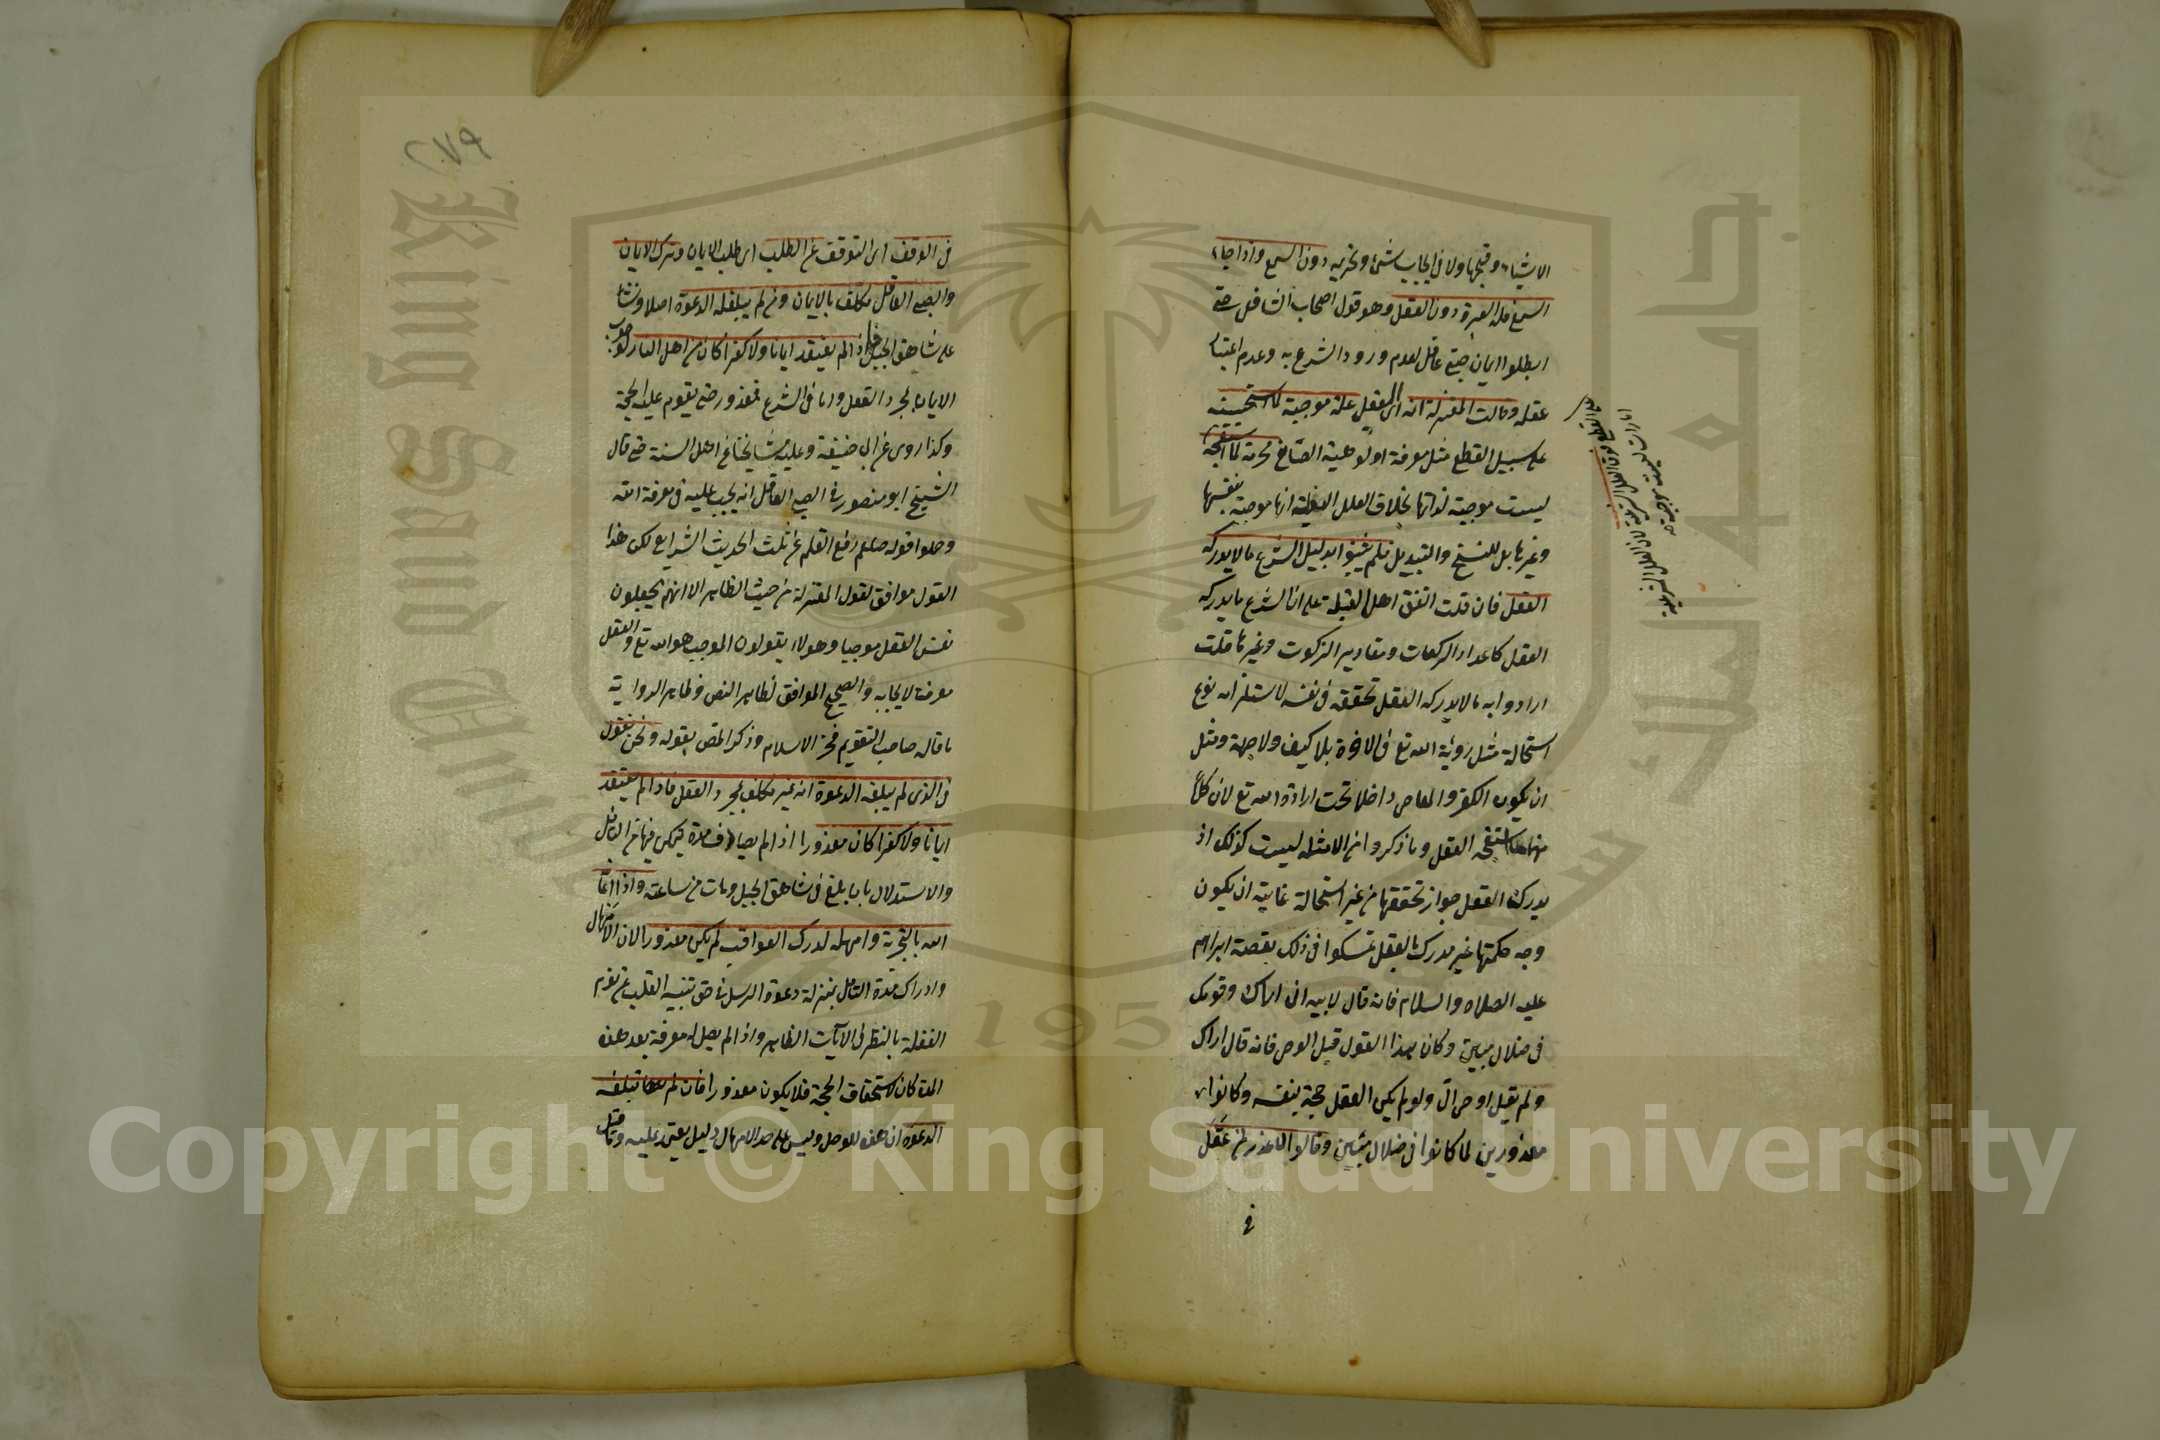 الاشياء وقبحها ولا في ايجاب شئ وتحريمه دون السمع واذا جاء
السمع فله العبرة دون العقل وهو قول اصحاب الشافعى حتى
ابطلوا ايمان صبى عاقل لعدم ورود الشرع به وعدم اعتبار
عقله وقالت المعتزلة انه اى العقل علة موجبة لما استحسنه
على سبيل القطع مثل معرفة الوهية الصانع محرمة لما استقبحه
ليست موجبة لذواتها بخلاف العلل العقلية انها موجبة بنفسها
وغير قابل للنسخ والتبديل فلم يثبتوا بدليل الشرع ما لا يدركه
العقل فان قلت اتفق اهل القبلة على ان الشرع ما يدركه
العقل كاعداد الركعات ومقادير الزكوت وغيرها قلت
ارادوا به ما لا يدركه العقل تحققه فى نفسه لاستلزامه نوع
استحالة مثل رؤية الله تع فى الاخرة بلا كيف ولا جهة ومثل
ان يكون الكفر والمعاصى داخلا تحت ارادة الله تع لان كلا
العقل وما ذكروا من الامثلة ليست كذلك اذ
يدرك العقل جواز تحققها من غير استحالة غايته ان يكون
وجه حكمتها غير مدرك بالعقل تمسكوا فى ذلك بقصة ابراهيم
عليه الصلاه والسلام فانه قال لابيه انى اراك وقومك
فى ضلال مبين وكان هذا القول قبل الوحى فانه قال اراك
ولم يقل اوحى الى ولو لم يكن العقل حجة بنفسه وكانوا
معذورين لما كانوا فى ضلال مبين وقالوا لا عذر لمن عقل
فى
٢٧٩
فى الوقف اى التوقف عن الطلب اى طلب الايمان وترك الايمان
والصبى العاقل مكلف بالايمان ومن لم يبلغه الدعوة اصلا ونشا
على شاهق الجبل اذا لم يعتقد ايمانا ولا كفرا كان من اهل النار لوجوب
الايمان بمجرد العقل واما فى الشرع فمعذور حتى يقوم عليه الحجة
وكذا روى عن ابى حنيفة وعليه مشايخنا من اهل السنة حتى قال
الشيخ ابو منصور فى الصبى العاقل انه يجب عليه فى معرفة الله
وحملوا قوله صلعم رفع القلم عن ثلث الحديث الشرايع لكن هذا
القول موافق لقول المعتزلة من حيث الظاهر الا انهم يجعلون
نفس العقل موجبا وهولاء يقولون الموجب هو الله تع والعقل
معرف لايجابه والصحيح الموافق لظاهر النص وظاهر الرواية
ما قاله صاحب التقويم فخر الاسلام وذكر المص بقوله ونحن نقول
فى الذى لم يبلغه الدعوة انه غير مكلف بمجرد العقل فاذا لم يعتقد
ايمانا ولا كفرا كان معذورا اذا لم يصادف مدة يتمكن فيها من التامل
والاستدلال بان بلغ فى شاهق الجبل ومات من ساعته واذا اعانه
الله بالتجربة وامهله لدرك العواقب لم يكن معذورا لان الامهال
وادراك مدة التامل بمنزلة دعوة الرسل فى حق تنبيه القلب عن نوم
الغفلة بالنظر فى الآيات الظاهر واذا لم يحصل له معرفة بعد هذه
المدة كان لاستخفاف الحجة فلا يكون معذورا فان لم تبلغه
الدعوة وليس على حد الامهال دليل يعتمد عليه وما قيل